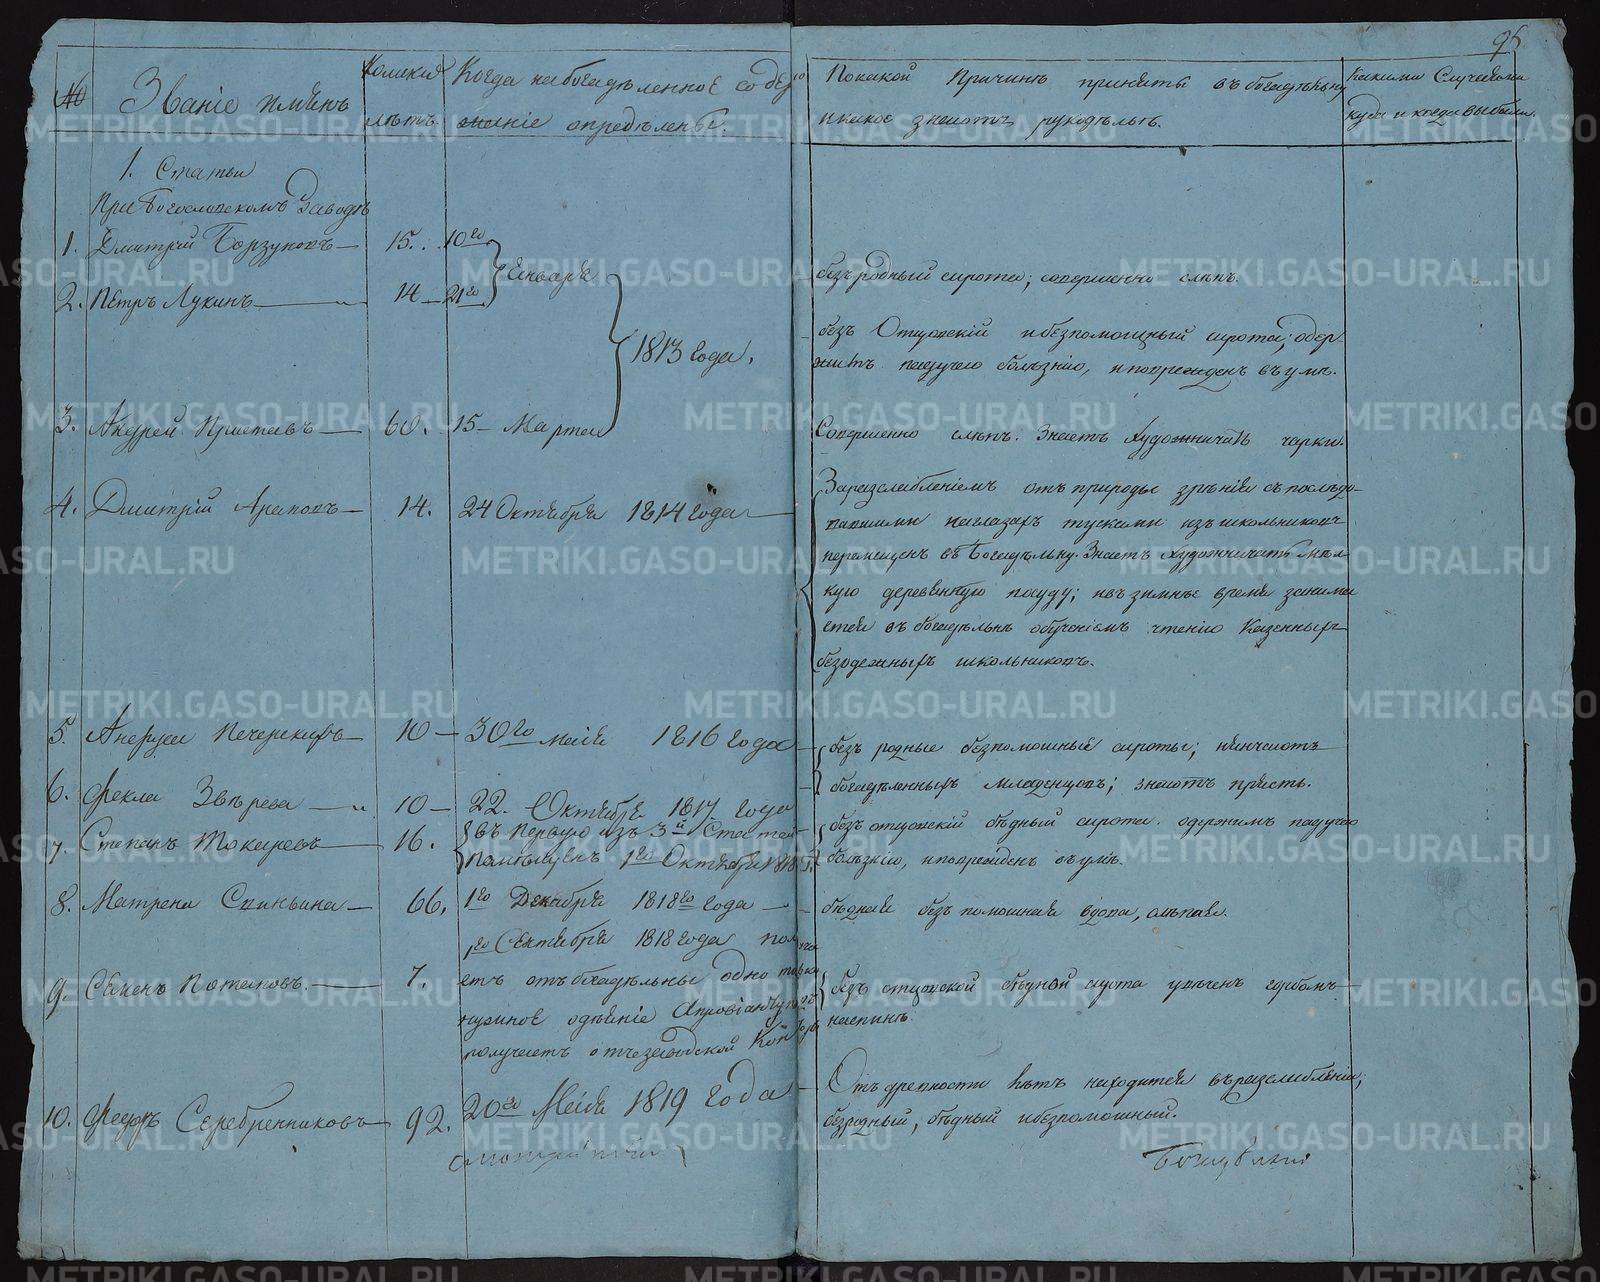 95
№
Званіе имянъ
Коликихъ
лѣтъ.
Когда на богадѣленное содер
жаніе опредѣлены.
По какой Причинѣ приняты въ богадѣльну
и какое знаютъ рукодѣлье.
Какими Случаями
куда и когда выбыли.
1. Статьи
При Богословскомъ Заводѣ
1. Дмитрій Борзуновъ — 15. 10го
Генваря
безъродный сирота; совершенно слѣпъ.
2. Петръ Лукинъ — 14 — 21го
1813 года.
безъ Отцовскій и безпомощный сирота; одер
житъ падучею болѣзнію, и поврежденъ въ умѣ.
3. Андрей Приставъ — 60. 15 — Марта
Совершенно слѣпъ. Знаетъ художничать чарки.
4. Дмитрій Араповъ — 14. 24 Октября 1814 года —
За разслабленіемъ отъ природы зрѣнія съ послѣдо-
вавшими на глазахъ тусками изъ школьниковъ
перемещенъ въ Богадѣльну. Знаетъ художничать мѣл-
кую деревянную посуду; и въ зимнѣе время занима
ется въ богадѣльнѣ обученіемъ чтенію Казенныхъ
безодежныхъ школьниковъ.
5. Анериса Печерскихъ — 10 — 30го маія 1816 года —
безъ родные безпомошные сироты; нянчаютъ
6. Фекла Звѣрева — 10 — 22. Октября 1817. года
богадѣленныхъ младенцовъ; знаютъ прясть.
7. Степанъ Токаревъ — 16. въ Первую изъ 3й Статьи
помѣщенъ 1го Октября 1818
безъ отцовскій бѣдный сирота. одержимъ падучею
болѣзнію, и поврежденъ въ умѣ.
8. Матрена Спиньина — 66. 1го Декабря 1818го года —
бѣдная безпомошная вдова, слѣпая.
9. Семенъ Потаповъ. — 7. 1го Сентября 1818 года получа
етъ отъ богадѣльны одно
нужное одѣяніе А провіантъ
получаетъ отъ заводской Конторы
безъ отцовской бѣдной сирота увѣченъ горбомъ
на спинѣ.
10. Федоръ Серебренниковъ — 92. 20го Маія 1819 года —
Отъ древности лѣтъ находится въ разслабленіи;
безродный, бѣдный и безпомошный.